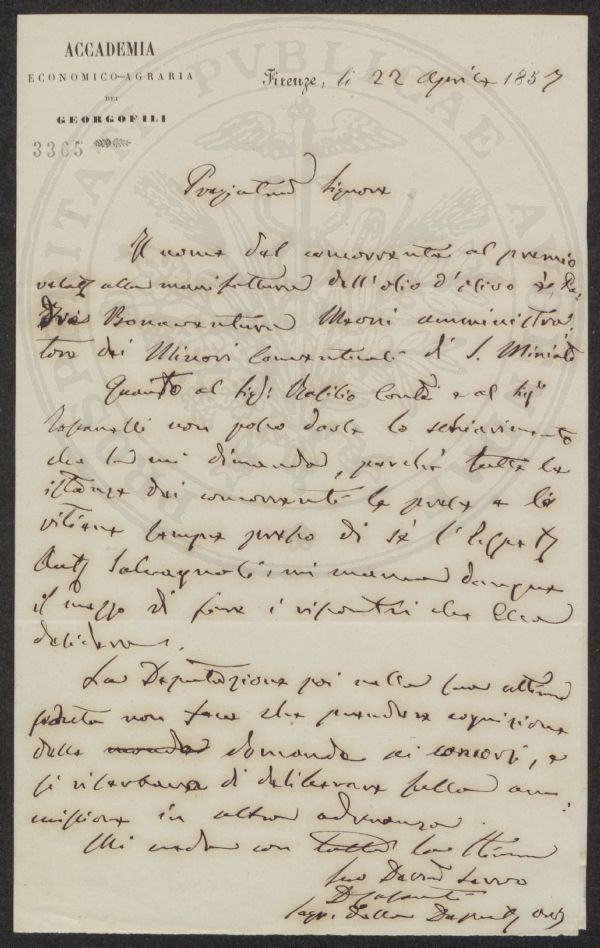 ACCADEMIA
ECONOMICO-AGRARIA
DEI
GEORGOFILI
3365
Firenze, li 22 Aprile 1857
Pregiatmo Signore
Il nome del concorrente al premio
relatº alla manifattura dell'olio d'olivo è, Pa-
dre Bonaventura Meoni amministra-
tore dei Minori Conventuali di S. Miniato
Quanto al Sigr: Basilio Conti e al Sigr
non posso darle lo schiarimento
che Ella mi dimanda, perchè tutte le
istanze dei concorrenti le prese e le
ritiene sempre presso di sè l'
Salvagnoli, mi manca dunque
il mezzo di fare i riscontri che Ella
desidera.
La Deputazione poi nella sua ultima
seduta non fece che prendere cognizione
delle domande ai concorsi, e
si riserbava di deliberare sulla am-
missione in altra adunanza.
Mi creda con tutta la stima
Suo Devmo Servo
Segr. della Deputaz
PROSPERITATI PUBLICAE AUGENDAE